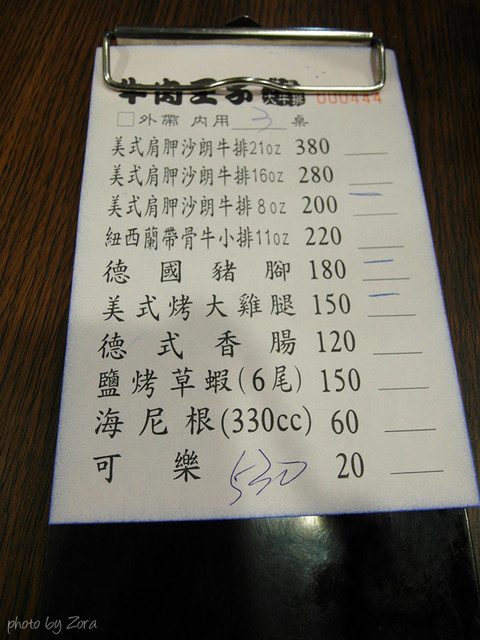 牛肉王子 大牛排 000444
□外帶 內用 3 桌
美式肩胛沙朗牛排21oz 380
美式肩胛沙朗牛排16oz 280
美式肩胛沙朗牛排8oz 200
紐西蘭帶骨牛小排11oz 220
德國豬腳 180
美式烤大雞腿 150
德式香腸 120
鹽烤草蝦(6尾) 150
海尼根(330cc) 60
可樂 20
530
photo by Zora